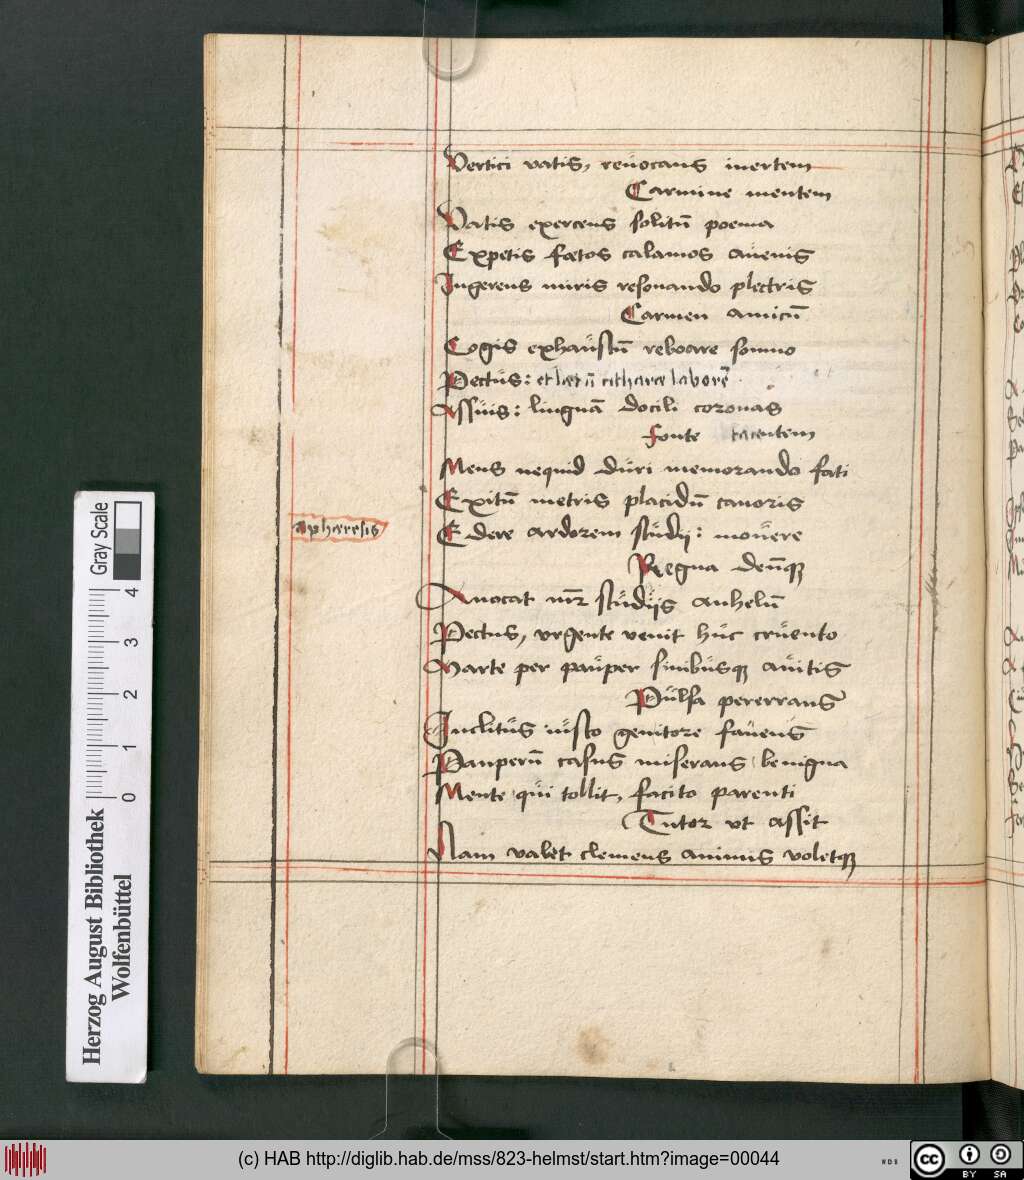 Vertici vatis, reuocans inertem
Carmine mentem
Vatis exercens solitū poema
Expetis fœtos calamos auenis
Ingerens miris resonando plectris
Carmen amicū
Cogis exhaustū reboare somno
Pectus: et lætū citharæ laborē.
Assuis: linguā docili coronas
fonte tacentem
Mens nequid duri memorando fati
Exitū metris placidū canoris
aphæresis
Edere ardorem studii: mouere
Regna denq̄
Auocat nr̄ studiis anhelū
Pectus, vrgente venit huc cruento
Marte per pauper finibusq auitis
Pulsa pererrans
Inclitus iusto genitore fauens
Pauperū casus miserans benigna
Mente qui tollit, facito parenti
Tutor vt assit
Nam valet clemens animis voletq
Gray Scale
4
3
2
1
0
Herzog August Bibliothek
Wolfenbüttel
(c) HAB http://diglib.hab.de/mss/823-helmst/start.htm?image=00044
WDB
cc
BY SA